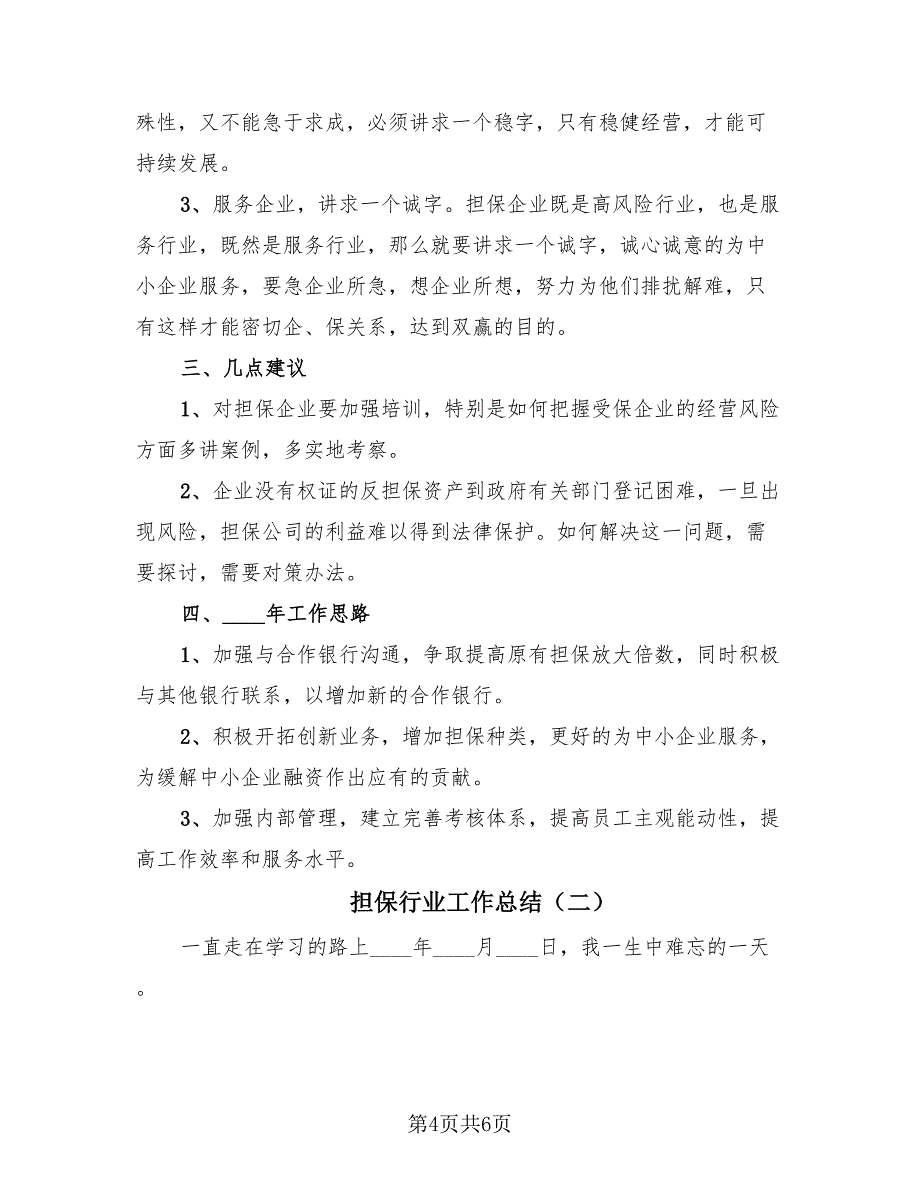 殊性，又不能急于求成，必须讲求一个稳字，只有稳健经营，才能可
持续发展。
3、服务企业，讲求一个诚字。担保企业既是高风险行业，也是服
务行业，既然是服务行业，那么就要讲求一个诚字，诚心诚意的为中
小企业服务，要急企业所急，想企业所想，努力为他们排扰解难，只
有这样才能密切企、保关系，达到双赢的目的。
三、几点建议
1、对担保企业要加强培训，特别是如何把握受保企业的经营风险
方面多讲案例，多实地考察。
2、企业没有权证的反担保资产到政府有关部门登记困难，一旦出
现风险，担保公司的利益难以得到法律保护。如何解决这一问题，需
要探讨，需要对策办法。
四、____年工作思路
1、加强与合作银行沟通，争取提高原有担保放大倍数，同时积极
与其他银行联系，以增加新的合作银行。
2、积极开拓创新业务，增加担保种类，更好的为中小企业服务，
为缓解中小企业融资作出应有的贡献。
3、加强内部管理，建立完善考核体系，提高员工主观能动性，提
高工作效率和服务水平。
担保行业工作总结（二）
一直走在学习的路上____年____月____日，我一生中难忘的一天
。
第4页共6页